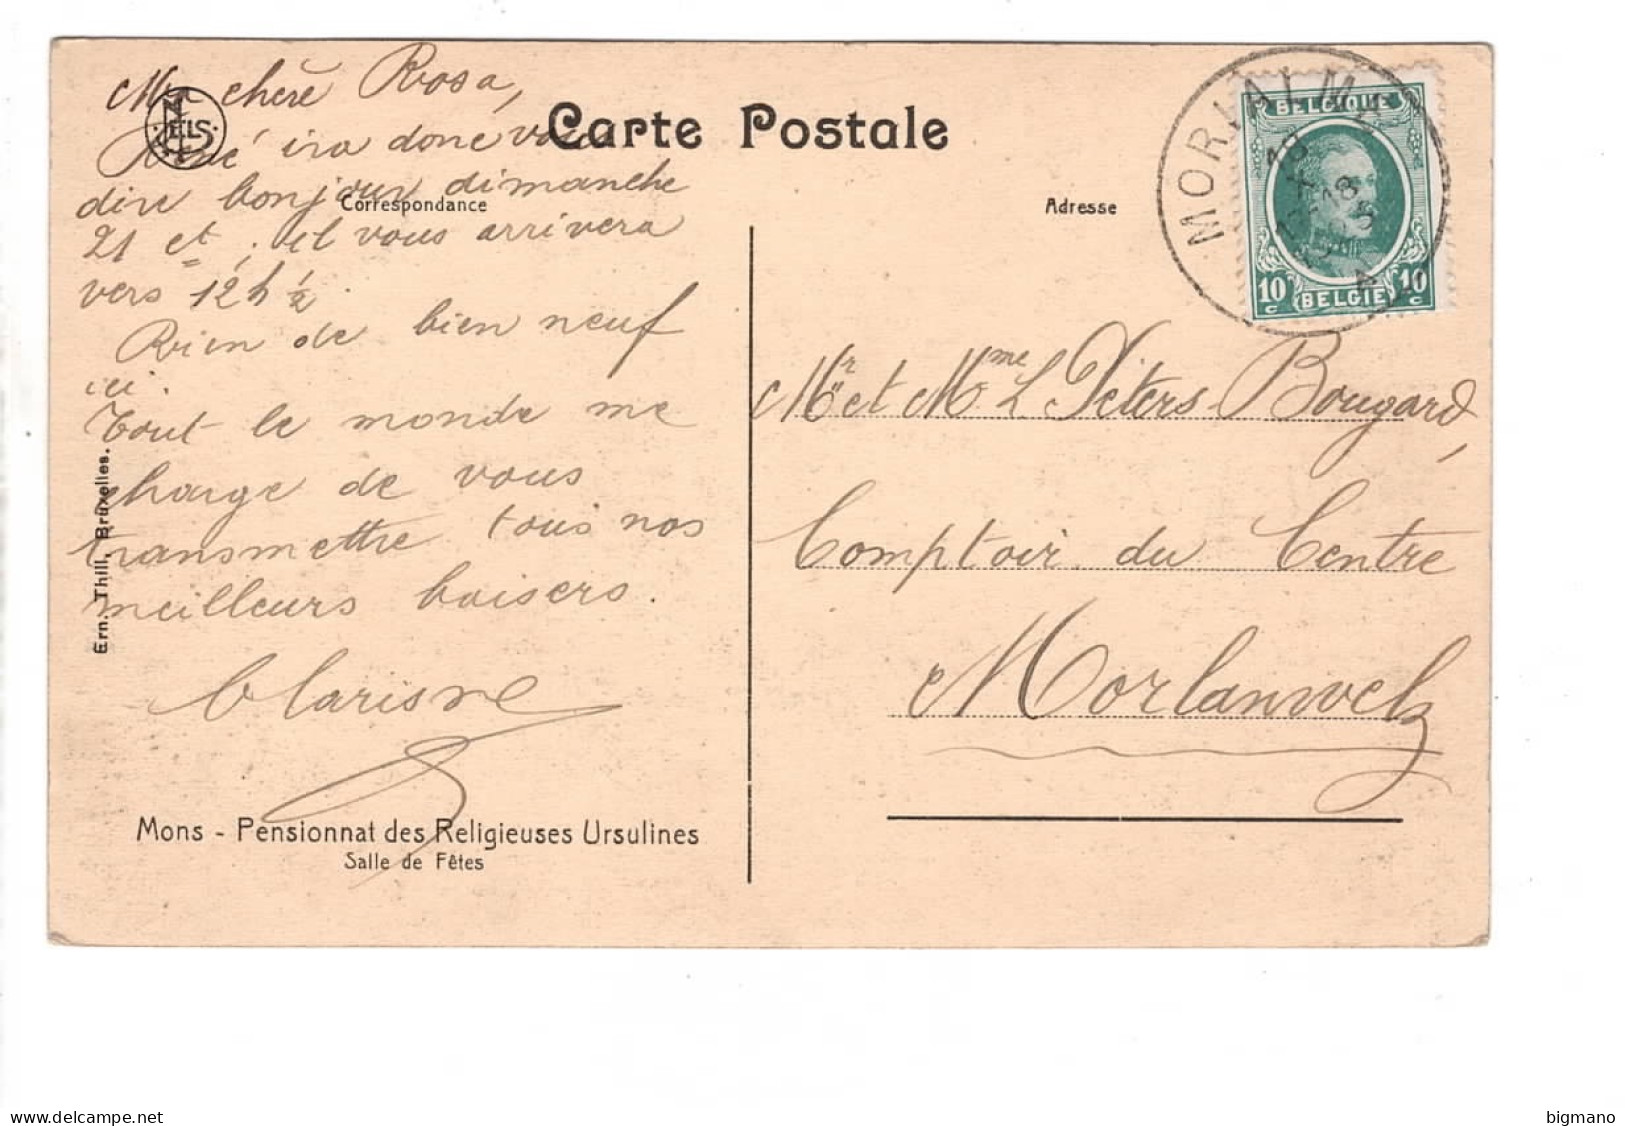 Carte Postale
Correspondance
Adresse
NELS
Ma chère Rosa,
ira donc vous
dire bonjour dimanche
21 ct, il vous arrivera
vers 12 h ½.
Rien de bien neuf
ici.
Tout le monde me
charge de vous
transmettre tous nos
meilleurs baisers.
Clarisse
Ern. Thill, Bruxelles.
Mons - Pensionnat des Religieuses Ursulines
Salle de Fêtes
MORIALMÉ
BELGIQUE
10 c BELGIE 10 c
Mr et Mme L Peters Bougard,
Comptoir du Centre
Morlanwelz
www.delcampe.net
bigmano